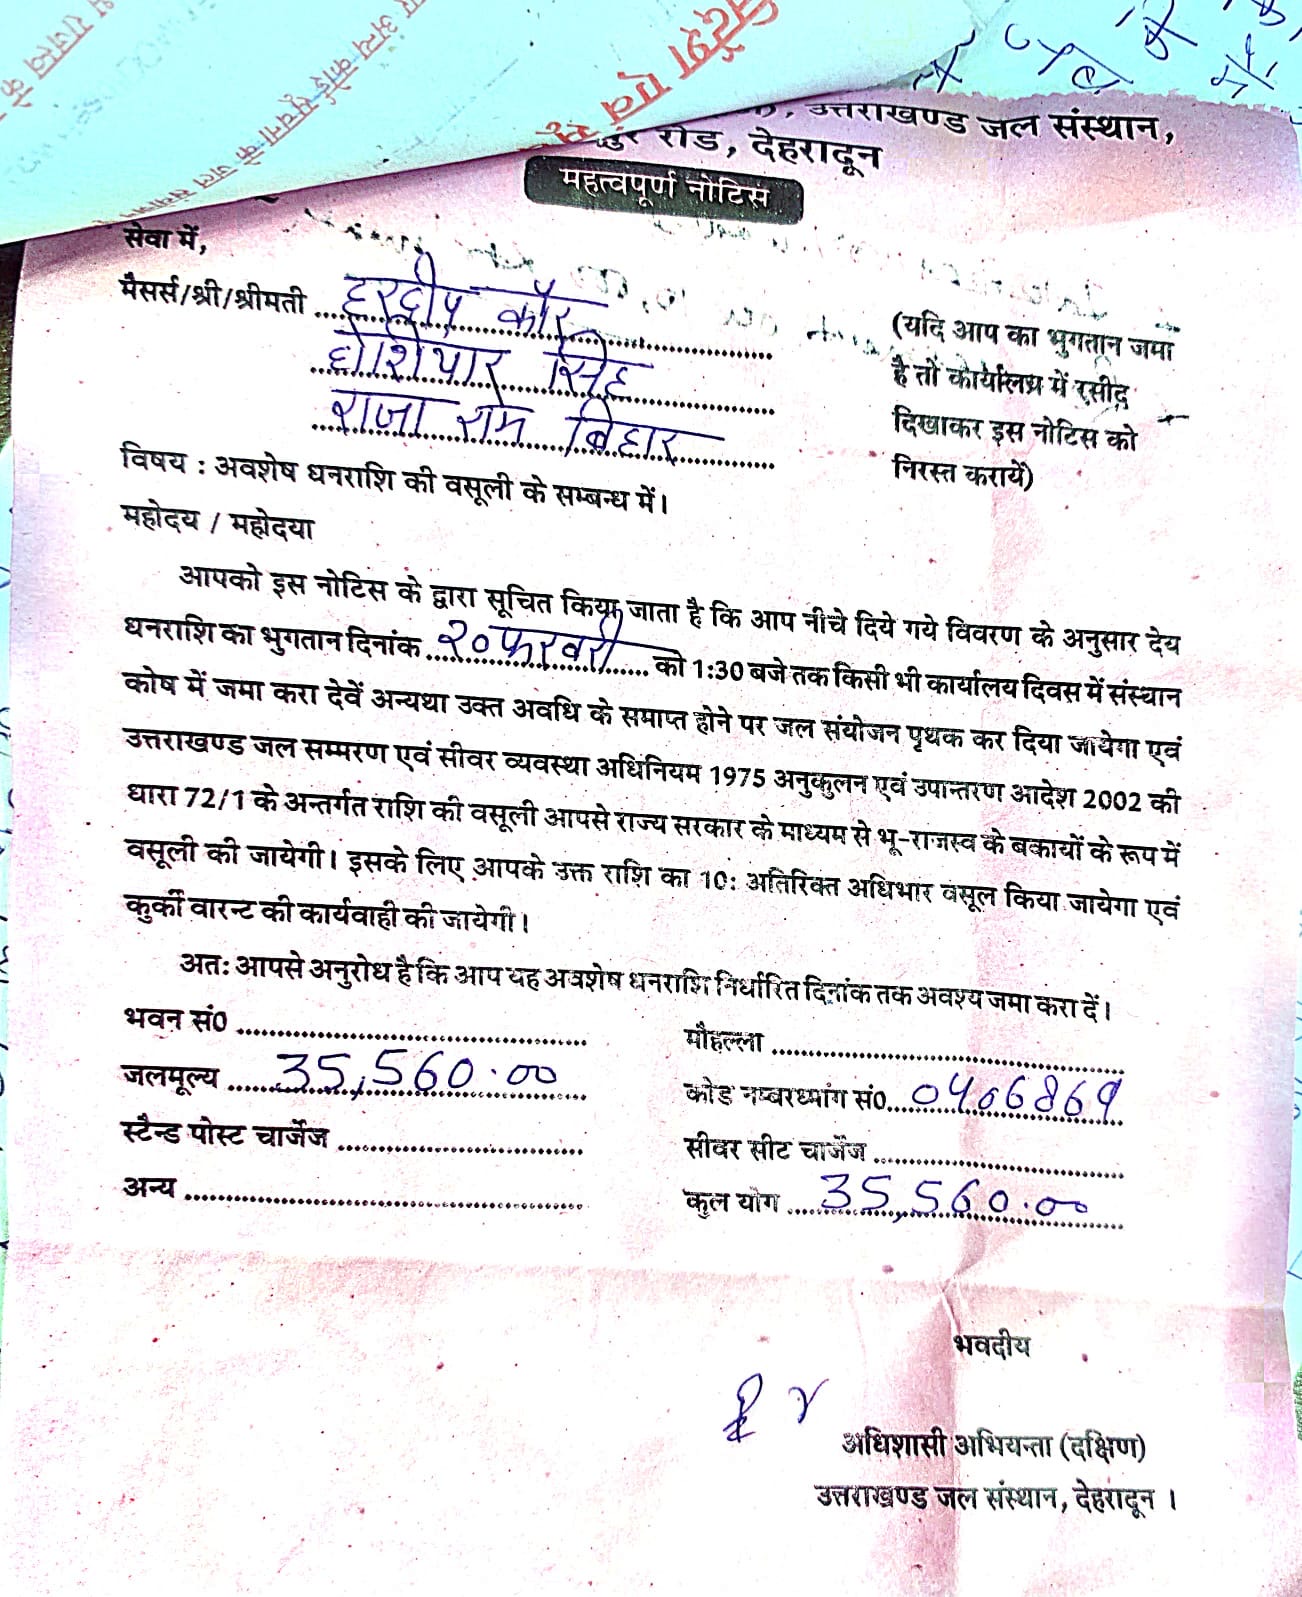 राजस्व के
अन्य कोई सूचना के जल संयोजन
एवं
उत्तराखण्ड जल संस्थान,
रोड, देहरादून
महत्वपूर्ण नोटिस
सेवा में,
मैसर्स/श्री/श्रीमती हरदीप कौर
होशियार सिंह
राजा राम बिहार
(यदि आप का भुगतान जमा
है तो कार्यालय में रसीद
दिखाकर इस नोटिस को
निरस्त करायें)
विषय : अवशेष धनराशि की वसूली के सम्बन्ध में।
महोदय / महोदया
आपको इस नोटिस के द्वारा सूचित किया जाता है कि आप नीचे दिये गये विवरण के अनुसार देय
धनराशि का भुगतान दिनांक २० फरवरी को 1:30 बजे तक किसी भी कार्यालय दिवस में संस्थान
कोष में जमा करा देवें अन्यथा उक्त अवधि के समाप्त होने पर जल संयोजन पृथक कर दिया जायेगा एवं
उत्तराखण्ड जल सम्मरण एवं सीवर व्यवस्था अधिनियम 1975 अनुकुलन एवं उपान्तरण आदेश 2002 की
धारा 72/1 के अन्तर्गत राशि की वसूली आपसे राज्य सरकार के माध्यम से भू-राजस्व के बकायों के रूप में
वसूली की जायेगी। इसके लिए आपके उक्त राशि का 10: अतिरिक्त अधिभार वसूल किया जायेगा एवं
कुर्की वारन्ट की कार्यवाही की जायेगी।
अत: आपसे अनुरोध है कि आप यह अवशेष धनराशि निर्धारित दिनांक तक अवश्य जमा करा दें।
भवन सं0
मौहल्ला
जलमूल्य 35,560.00
कोड नम्बरध्मांग सं0 0406869
स्टैन्ड पोस्ट चार्जेज
सीवर सीट चार्जेज
अन्य
कुल योग 35,560.00
भवदीय
अधिशासी अभियन्ता (दक्षिण)
उत्तराखण्ड जल संस्थान, देहरादून ।